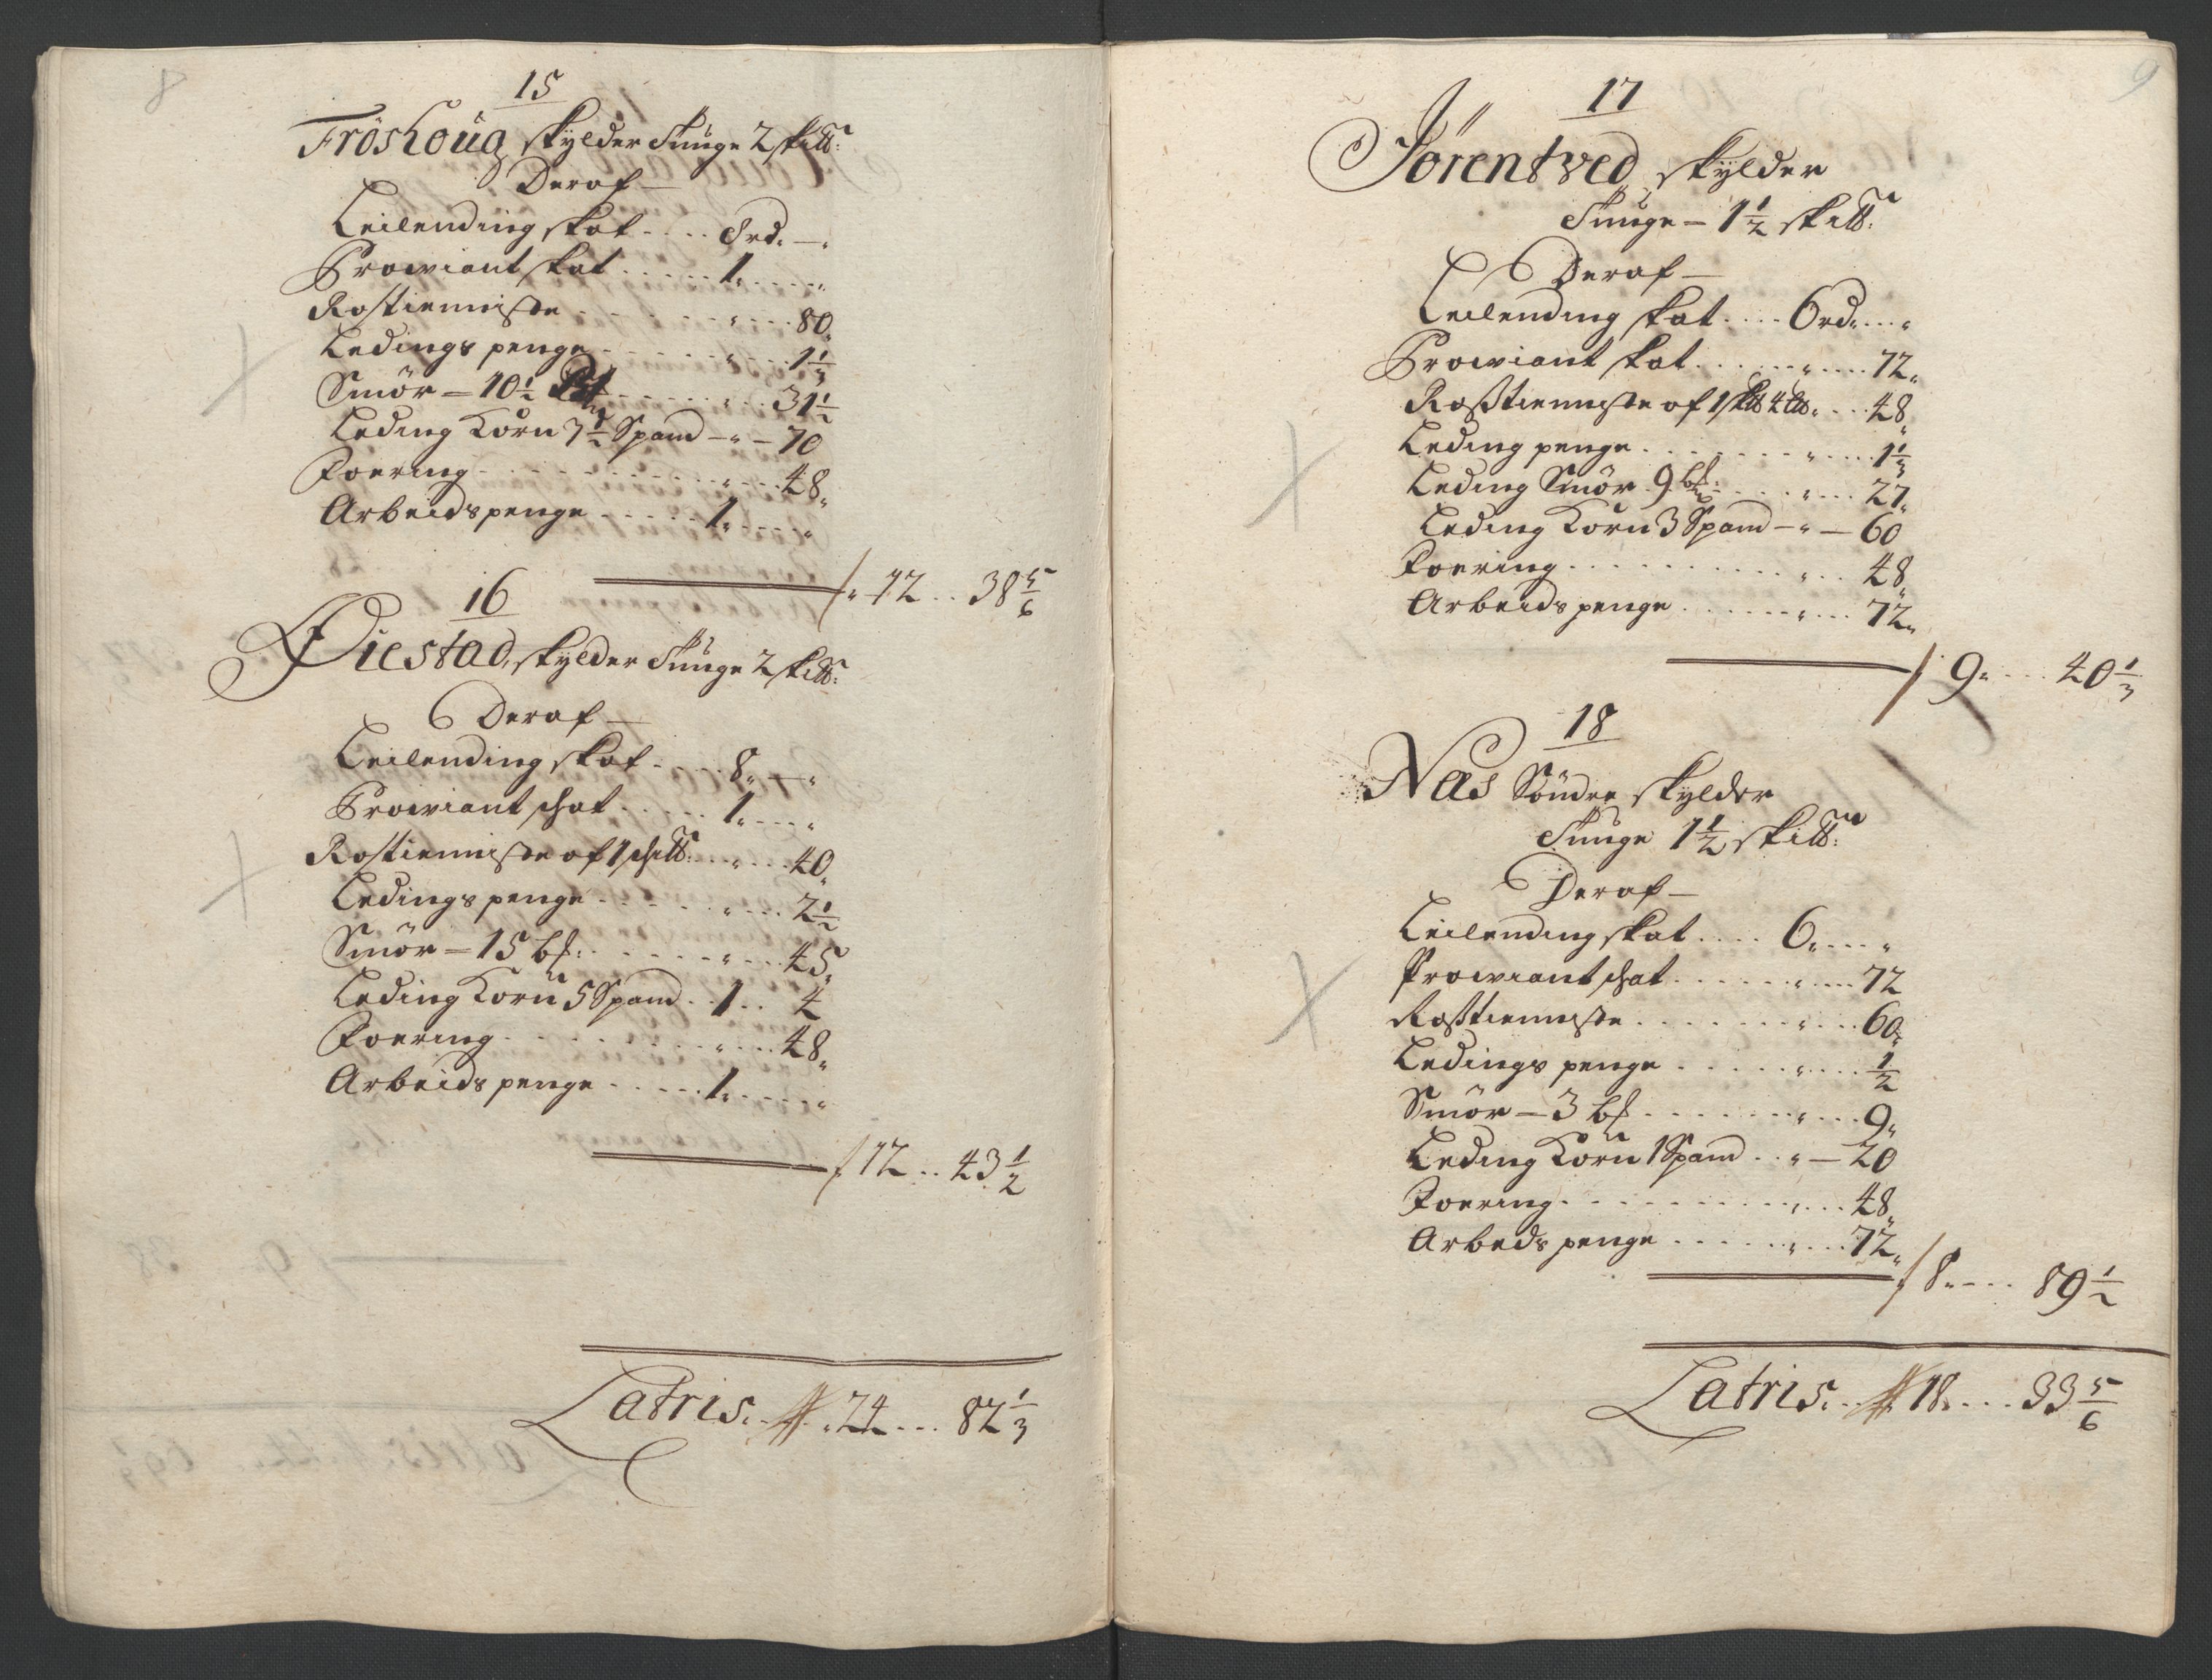 8
15
Fröshoug skylder Tunge 2 skitt:
Deraf
Leilending skat .... 8 rd. — "
Prowiant skat ..... 1. .... "
Rostienniste ..... " ... 80.
Ledings penge ..... " ... 1 1/3
Smör — 10 1/2 ..... " ... 31 1/2
Leding Korn 7 1/2 Spand — " — 70
Foering ..... " ... 48.
Arbeids penge ..... 1. .... "
12 .. 38 5/6
16
Öiestad, skylder Tunge 2 skitt:
Deraf
Leilending skat .... 8. — "
Prowiant schat ..... 1. .... "
Rostienniste af 1 schitt: ... " ... 40.
Ledings penge ..... " ... 2 1/2
Smör — 15 bf: ..... " ... 45.
Leding Korn 5 Spand .. 1 .. 4
Foering ..... " ... 48.
Arbeids penge ..... 1. .... "
12 .. 43 1/2
Latris. 24 ... 82 1/3
9
17
Jörentved skylder
Tunge — 1 1/2 skitt:
Deraf
Leilending skat .... 6 rd. ... "
Prowiant skat ..... " .... 72.
Rosstienniste af 1 skit 4 lb. " ... 48.
Leding penge ..... " .... 1 1/3
Leding Smör 9 bf: ..... " ... 27.
Leding Korn 3 Spand — " — 60
Foering ..... " .. 48.
Arbeids penge ..... " ... 72.
9. ... 40 1/3
18
Næs Söndre skylder
Tunge 1 1/2 skitt:
Deraf
Leilending skat .... 6. ... "
Prowiant schat ..... " .... 72
Rosstienniste ..... " ... 60.
Ledings penge ..... " .... 1/2
Smör — 3 bf ..... " ... 9.
Leding Korn 1 Spand .. " — 20
Foering ..... " ... 48.
Arbeds penge ..... " ... 72.
8. ... 89 1/2
Latris. 18. ... 33 5/6